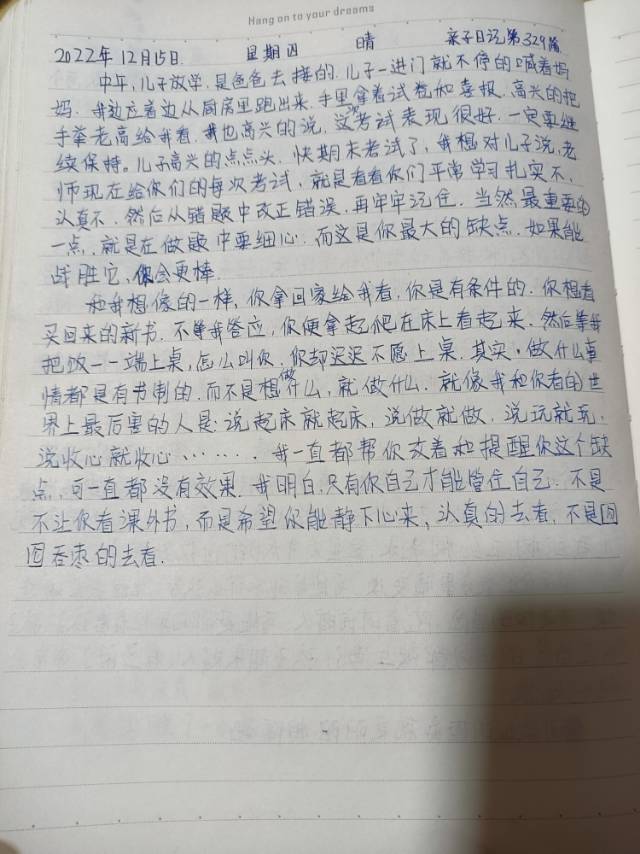 Hang on to your dreams
2022年12月15日 星期四 晴 亲子日记第329篇
中午,儿子放学,是爸爸去接的.儿子一进门就不停的喊着妈
妈.我边应着边从厨房里跑出来.手里拿着试卷和喜报.高兴的把
手举老高给我看.我也高兴的说,这次考试表现很好.一定要继
续保持。儿子高兴的点点头.快期末考试了,我想对儿子说,老
师现在给你们的每次考试,就是看看你们平常学习扎实不,
认真不.然后从错题中改正错误,再牢牢记住.当然最重要的
一点,就是在做题中要细心.而这是你最大的缺点.如果能
战胜它,你会更棒.
和我想像的一样,你拿回家给我看,你是有条件的.你想看
买回来的新书.不等我答应,你便拿起爬在床上看起来.然后等我
把饭一一端上桌,怎么叫你.你却迟迟不愿上桌.其实,做什么事
情都是有节制的.而不是想做什么,就做什么.就像我和你看的世
界上最厉害的人是:说起床就起床,说做就做,说玩就玩,
说收心就收心……我一直都帮你改着和提醒你这个缺
点,可一直都没有效果.我明白,只有你自己才能管住自己.不是
不让你看课外书,而是希望你能静下心来,认真的去看.不是囫
囵吞枣的去看.